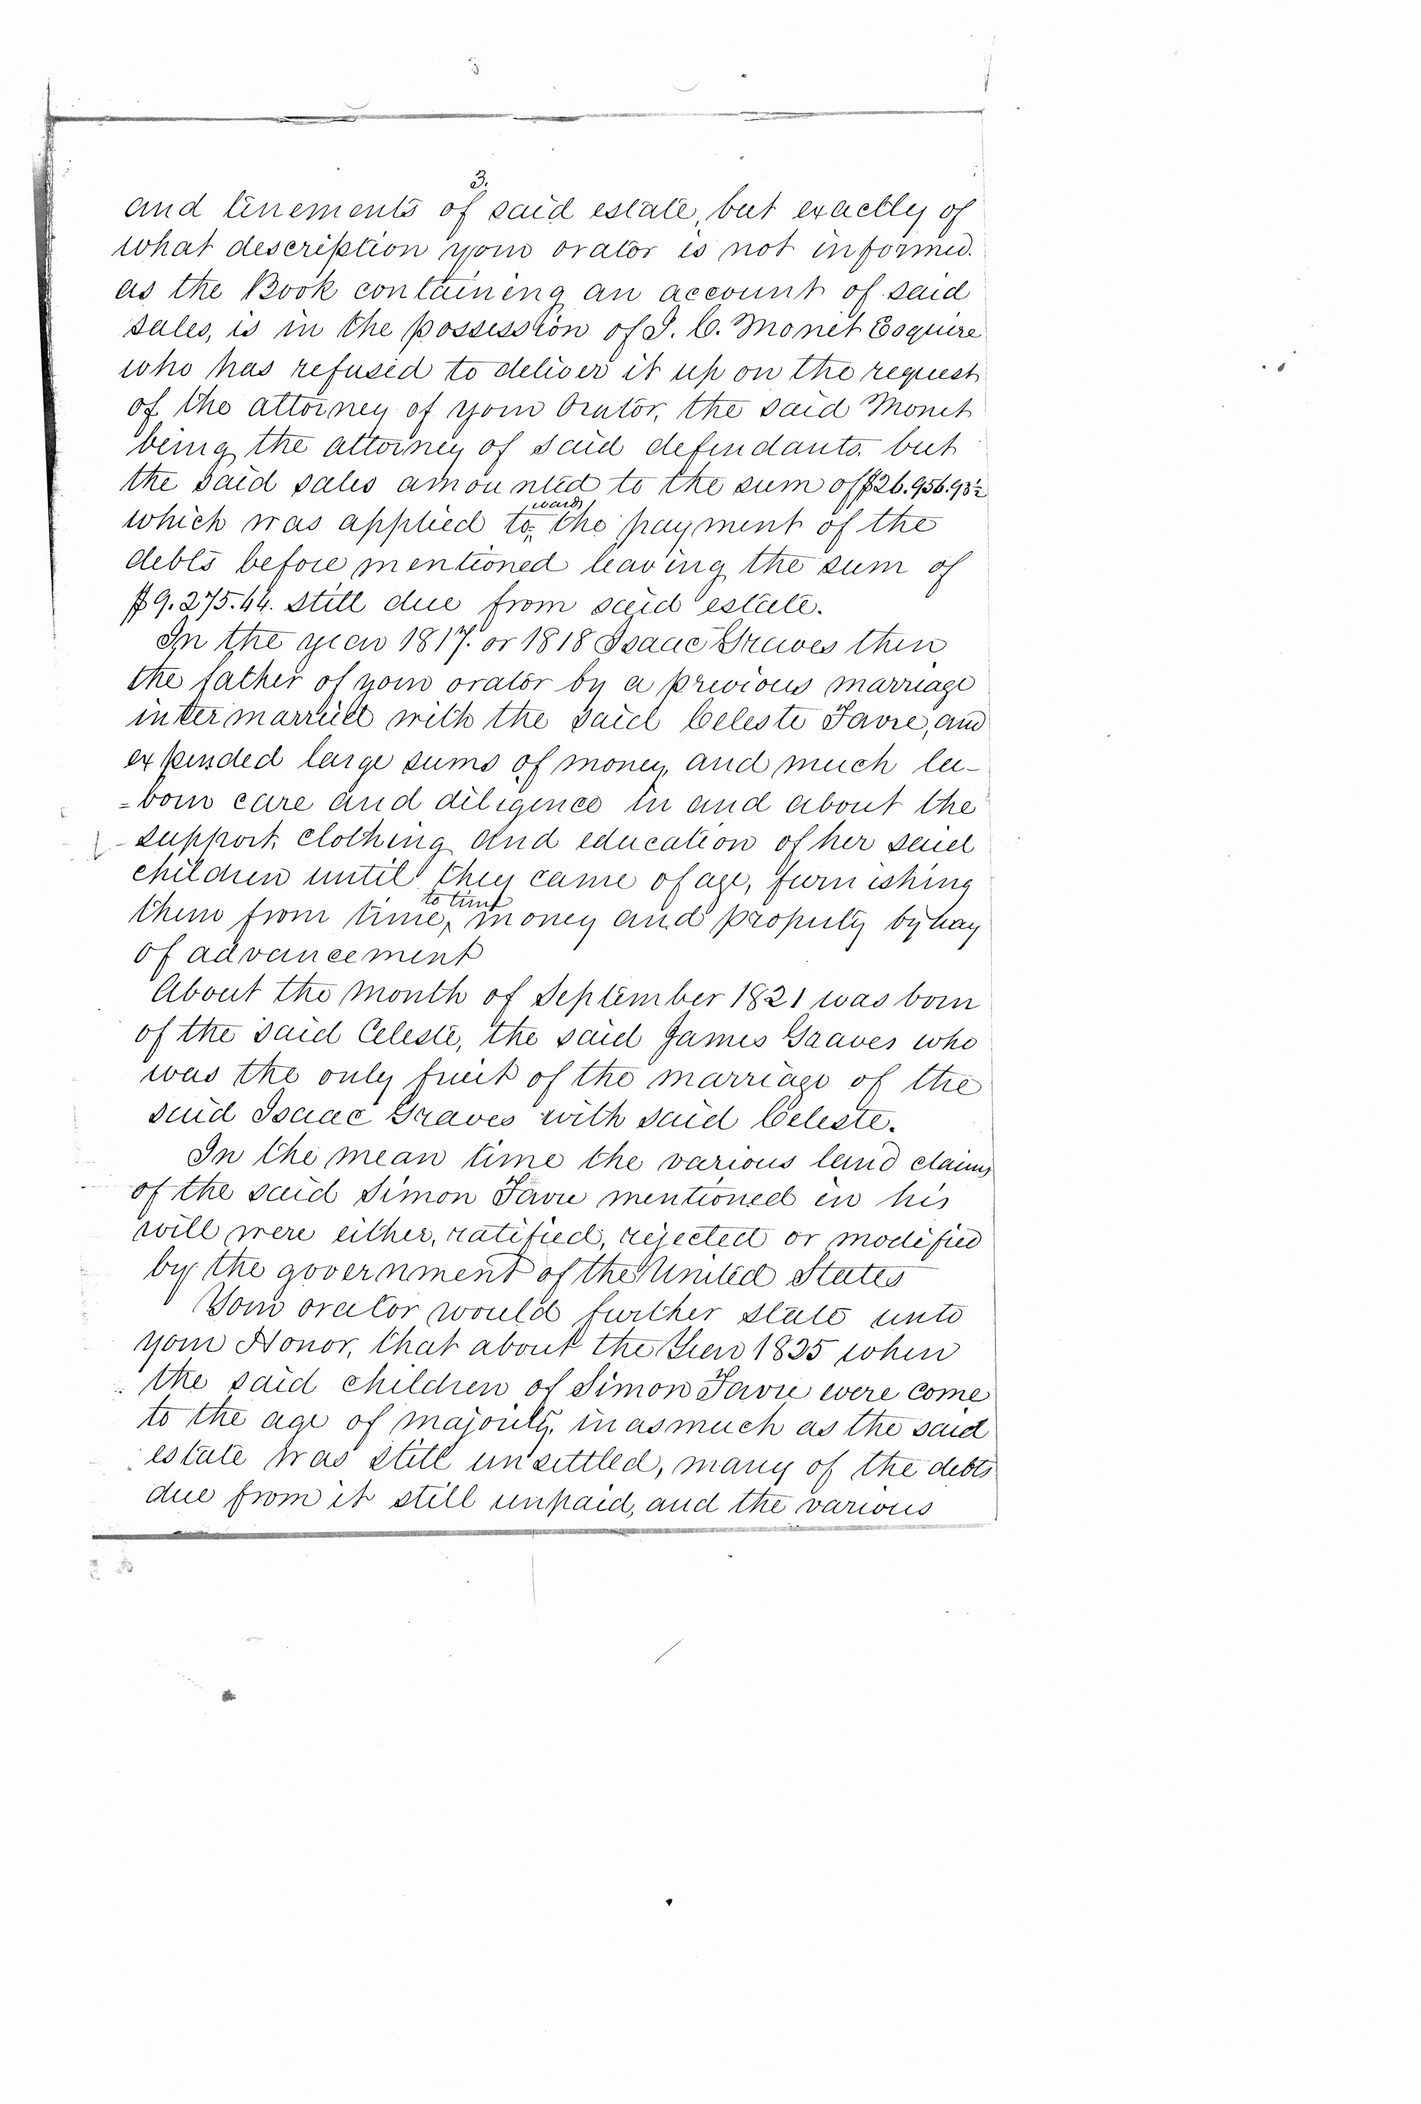 3.
and tenements of said estate, but exactly of
what description your orator is not informed.
as the Book containing an account of said
sales, is in the possession of J. C. Monet Esquire
who has refused to deliver it up on the request
of the attorney of your Orator, the said Monet
being the attorney of said defendants. but
the said sales amounted to the sum of $26.956.93½
which was applied towards the payment of the
debts before mentioned leaving the sum of
$9.275.44. still due from said estate.
In the year 1817. or 1818 Isaac Graves then
the father of your orator by a previous marriage
intermarried with the said Celeste Favre, and
expended large sums of money, and much la-
=bour care and diligence in and about the
support, clothing and education of her said
children until they came of age, furnishing
them from time to time money and property by way
of advancement
About the month of September 1821 was born
of the said Celeste, the said James Graves who
was the only fruit of the marriage of the
said Isaac Graves with said Celeste.
In the mean time the various land claims
of the said Simon Favre mentioned in his
will were either, ratified, rejected or modified
by the government of the United States
Your orator would further state unto
your Honor, that about the Year 1835 when
the said children of Simon Favre were come
to the age of majority, in as much as the said
estate was still unsettled, many of the debts
due from it still unpaid, and the various